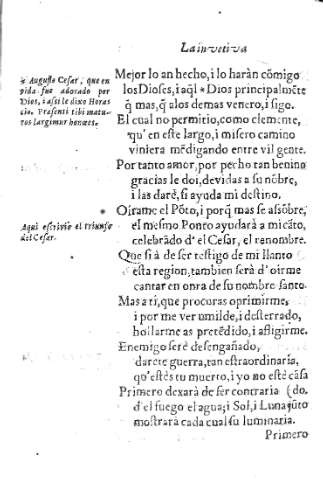 La invetiva
* Augusto Cesar, que en
vida fue adorado por
Dios, i assi le dixo Hora
cio. Præsenti tibi matu-
ros largimur honores.
Mejor lo an hecho, i lo haràn cõmigo
los Dioses, i aq̃l * Dios principalmẽte
q̃ mas, q̃ a los demas venero, i sigo.
El cual no permitio, como clemente,
qu' en este largo, i misero camino
viniera mẽdigando entre vil gente.
Por tanto amor, por pecho tan benino
gracias le doi, devidas a su nõbre,
i las darè, si ayuda mi destino.
Aqui escrivio el triunfo
del Cesar.
* Oirame el Põto, i porq̃ mas se assõbre,
el mesmo Ponto ayudarà a mi cãto,
celebrãdo d'el Cesar, el renombre.
Que si à de ser testigo de mi llanto
esta region, tambien serà d'oirme
cantar en onra de su nombre santo.
Mas a ti, que procuras oprimirme,
i por me ver umilde, i desterrado,
hollarme as pretẽdido, i afligirme.
Enemigo serè desengañado,
darète guerra, tan estraordinaria,
qu'estès tu muerto, i yo no estè cãsa
Primero dexarà de ser contraria (do.
d'el fuego el agua; i Sol, i Luna jũto
mostrarà cada cual su luminaria.
Primero